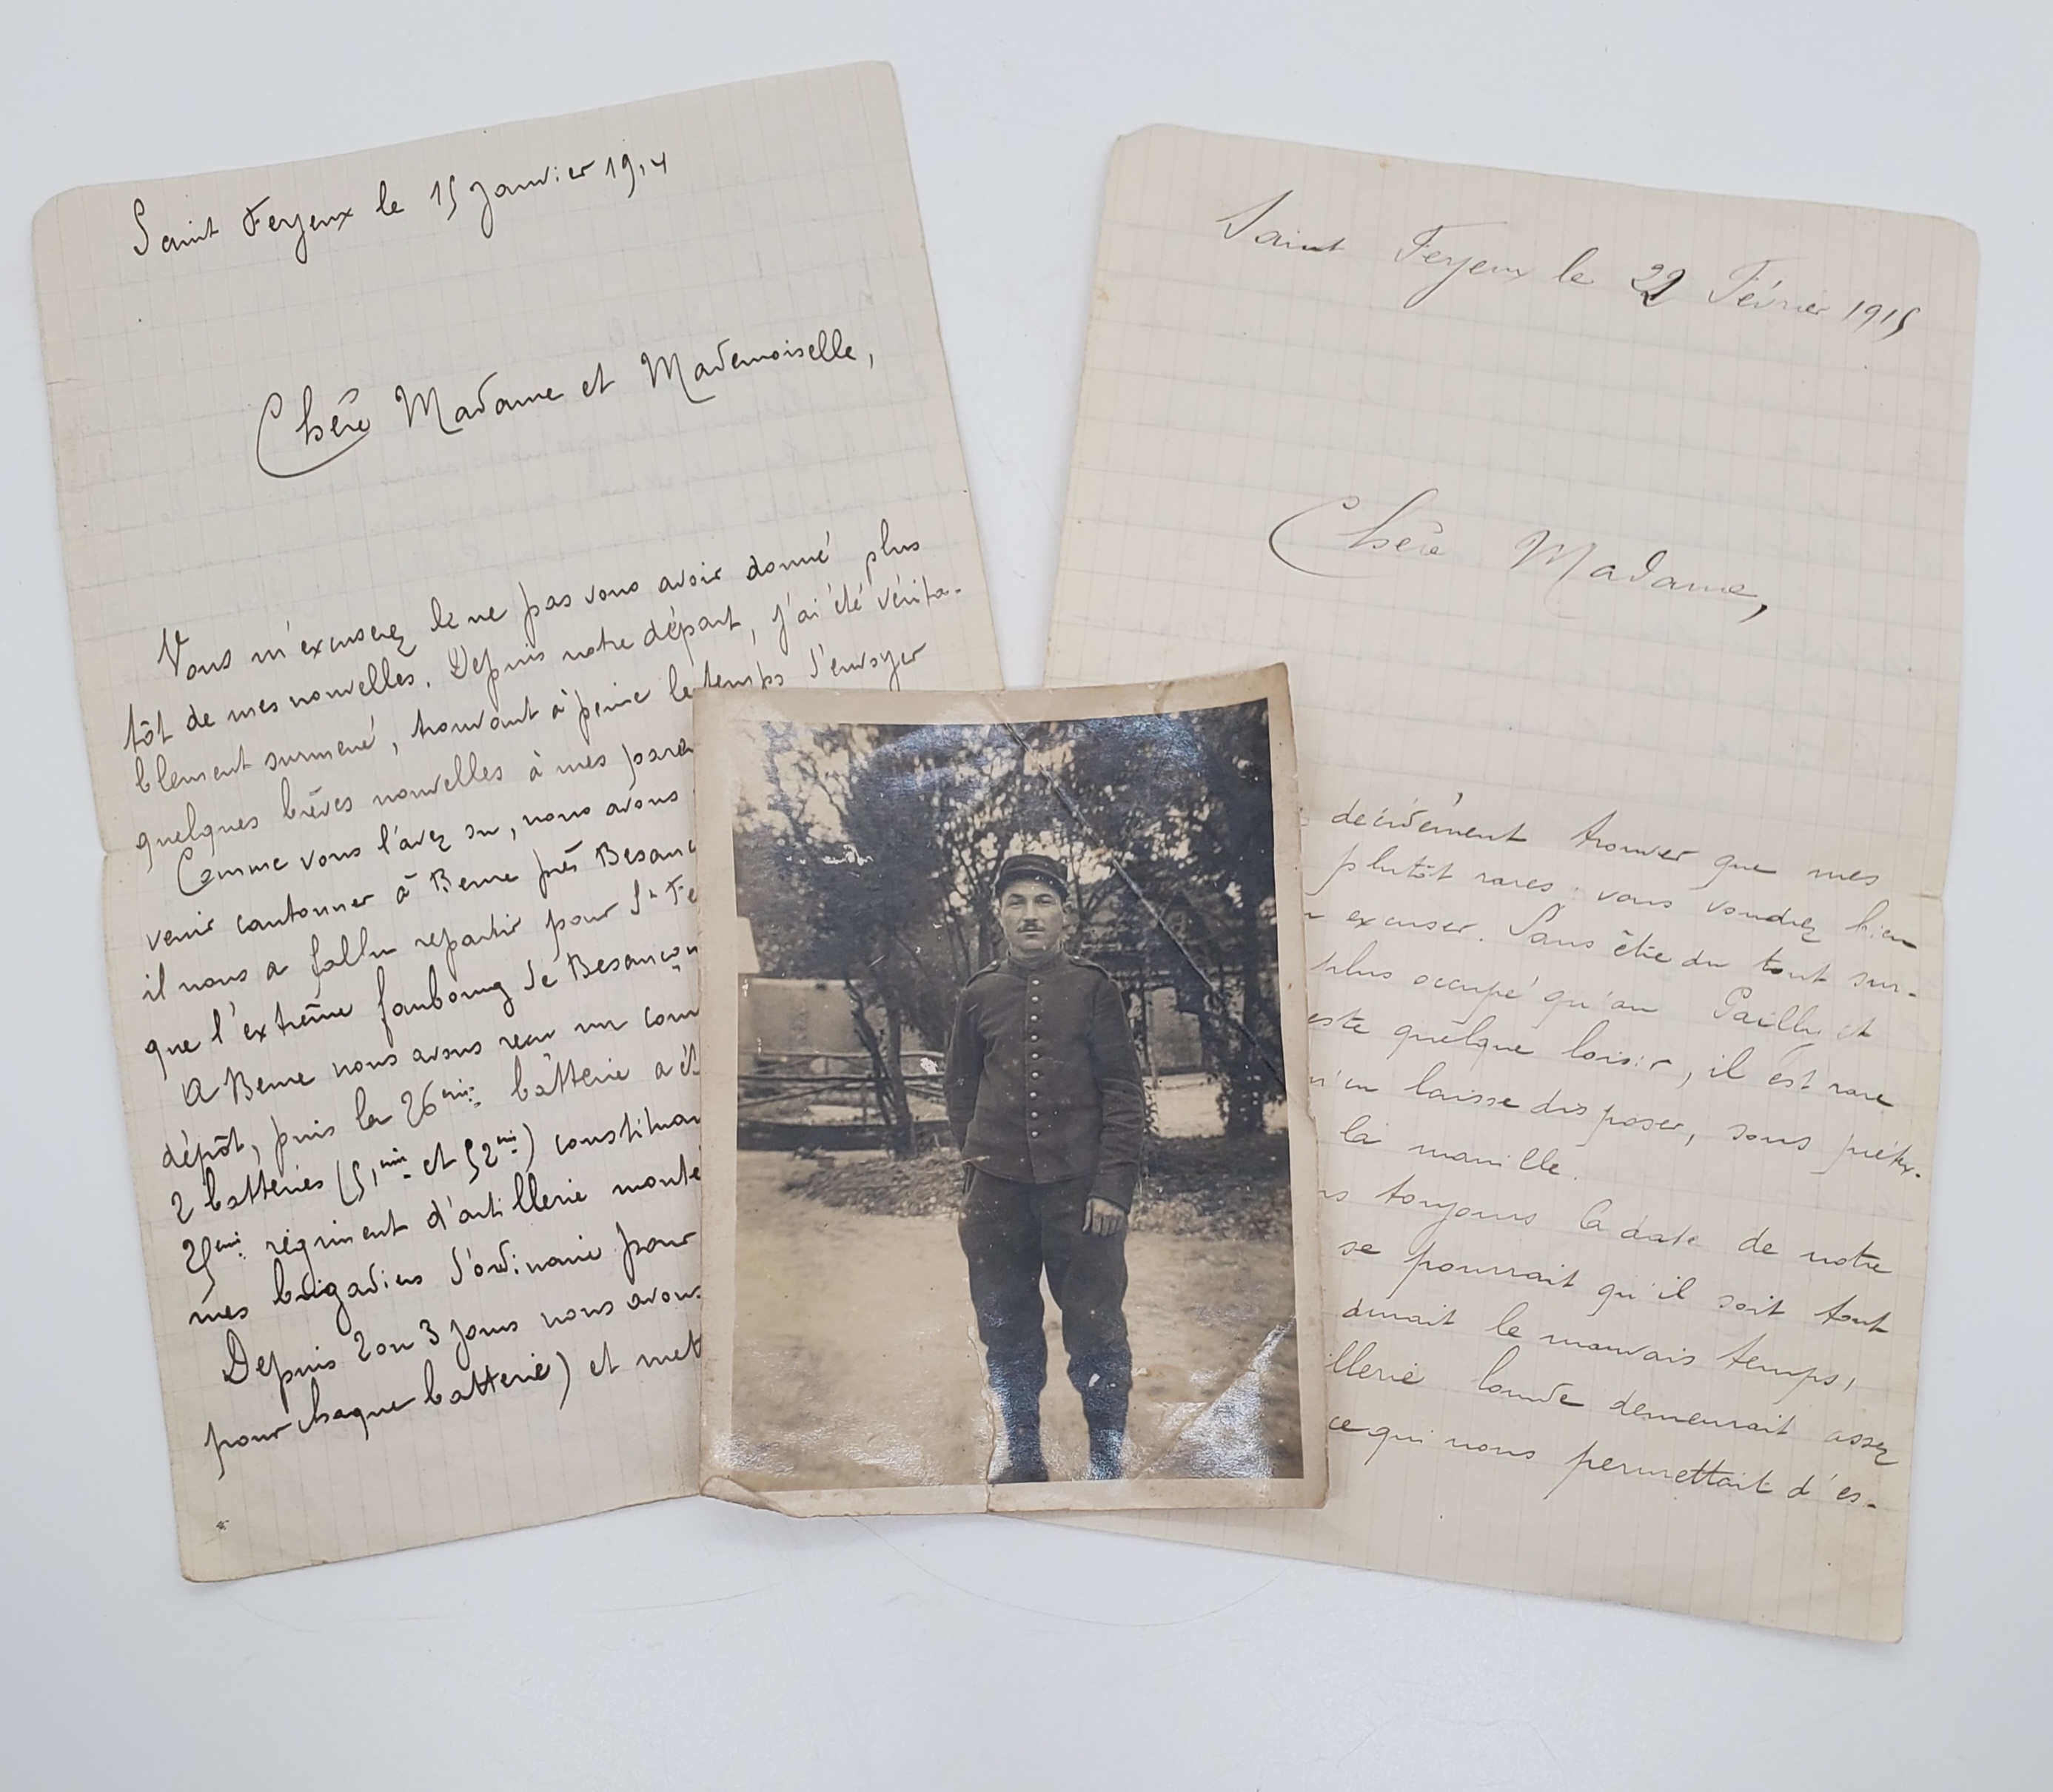 Saint Ferjeux le 15 Janvier 1914
Chère Madame et Mademoiselle,
Vous m'excuserez de ne pas vous avoir donné plus
tôt de mes nouvelles. Depuis notre départ, j'ai été vérita-
blement surmené, trouvant à peine le temps d'envoyer
quelques brèves nouvelles à mes
Comme vous l'avez su, nous avons
venir cantonner à Beure près
il nous a fallu repartir pour St
que l'extrême faubourg de Besançon
A Beure nous avons reçu un
dépôt, puis la 26ème batterie a
2 batteries (51ème et 52ème)
régiment d'artillerie
mes brigadiers d'ordinaire pour
Depuis 2 ou 3 jours nous avons
pour chaque batterie) et
Saint Ferjeux le 22 Février 1915
Chère Madame,
décidément trouver que mes
plutôt rares : vous voudrez bien
excuser. Sans être du tout sur-
plus occupé qu'au Pailly et
quelque loisir, il est rare
laisse disposer, sous prétex-
la manille.
toujours la date de notre
se pourrait qu'il soit tout
durait le mauvais temps,
lourde demeurait assez
ce qui nous permettait d'es-